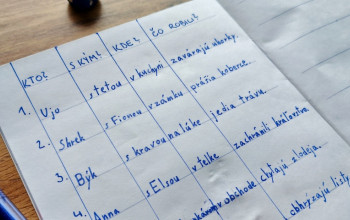 KTO? S KÝM? KDE? ČO ROBILI?
1. Ujo s tetou v kuchyni zavárajú uhorky.
2. Shrek s Fionou v zámku prášia koberce.
3. Býk s kravou na lúke jedia trávu.
4. Anna s Elsou v telke zachránili kráľovstvo
v obchode chytajú zlodeja.
obhrýzajú listy